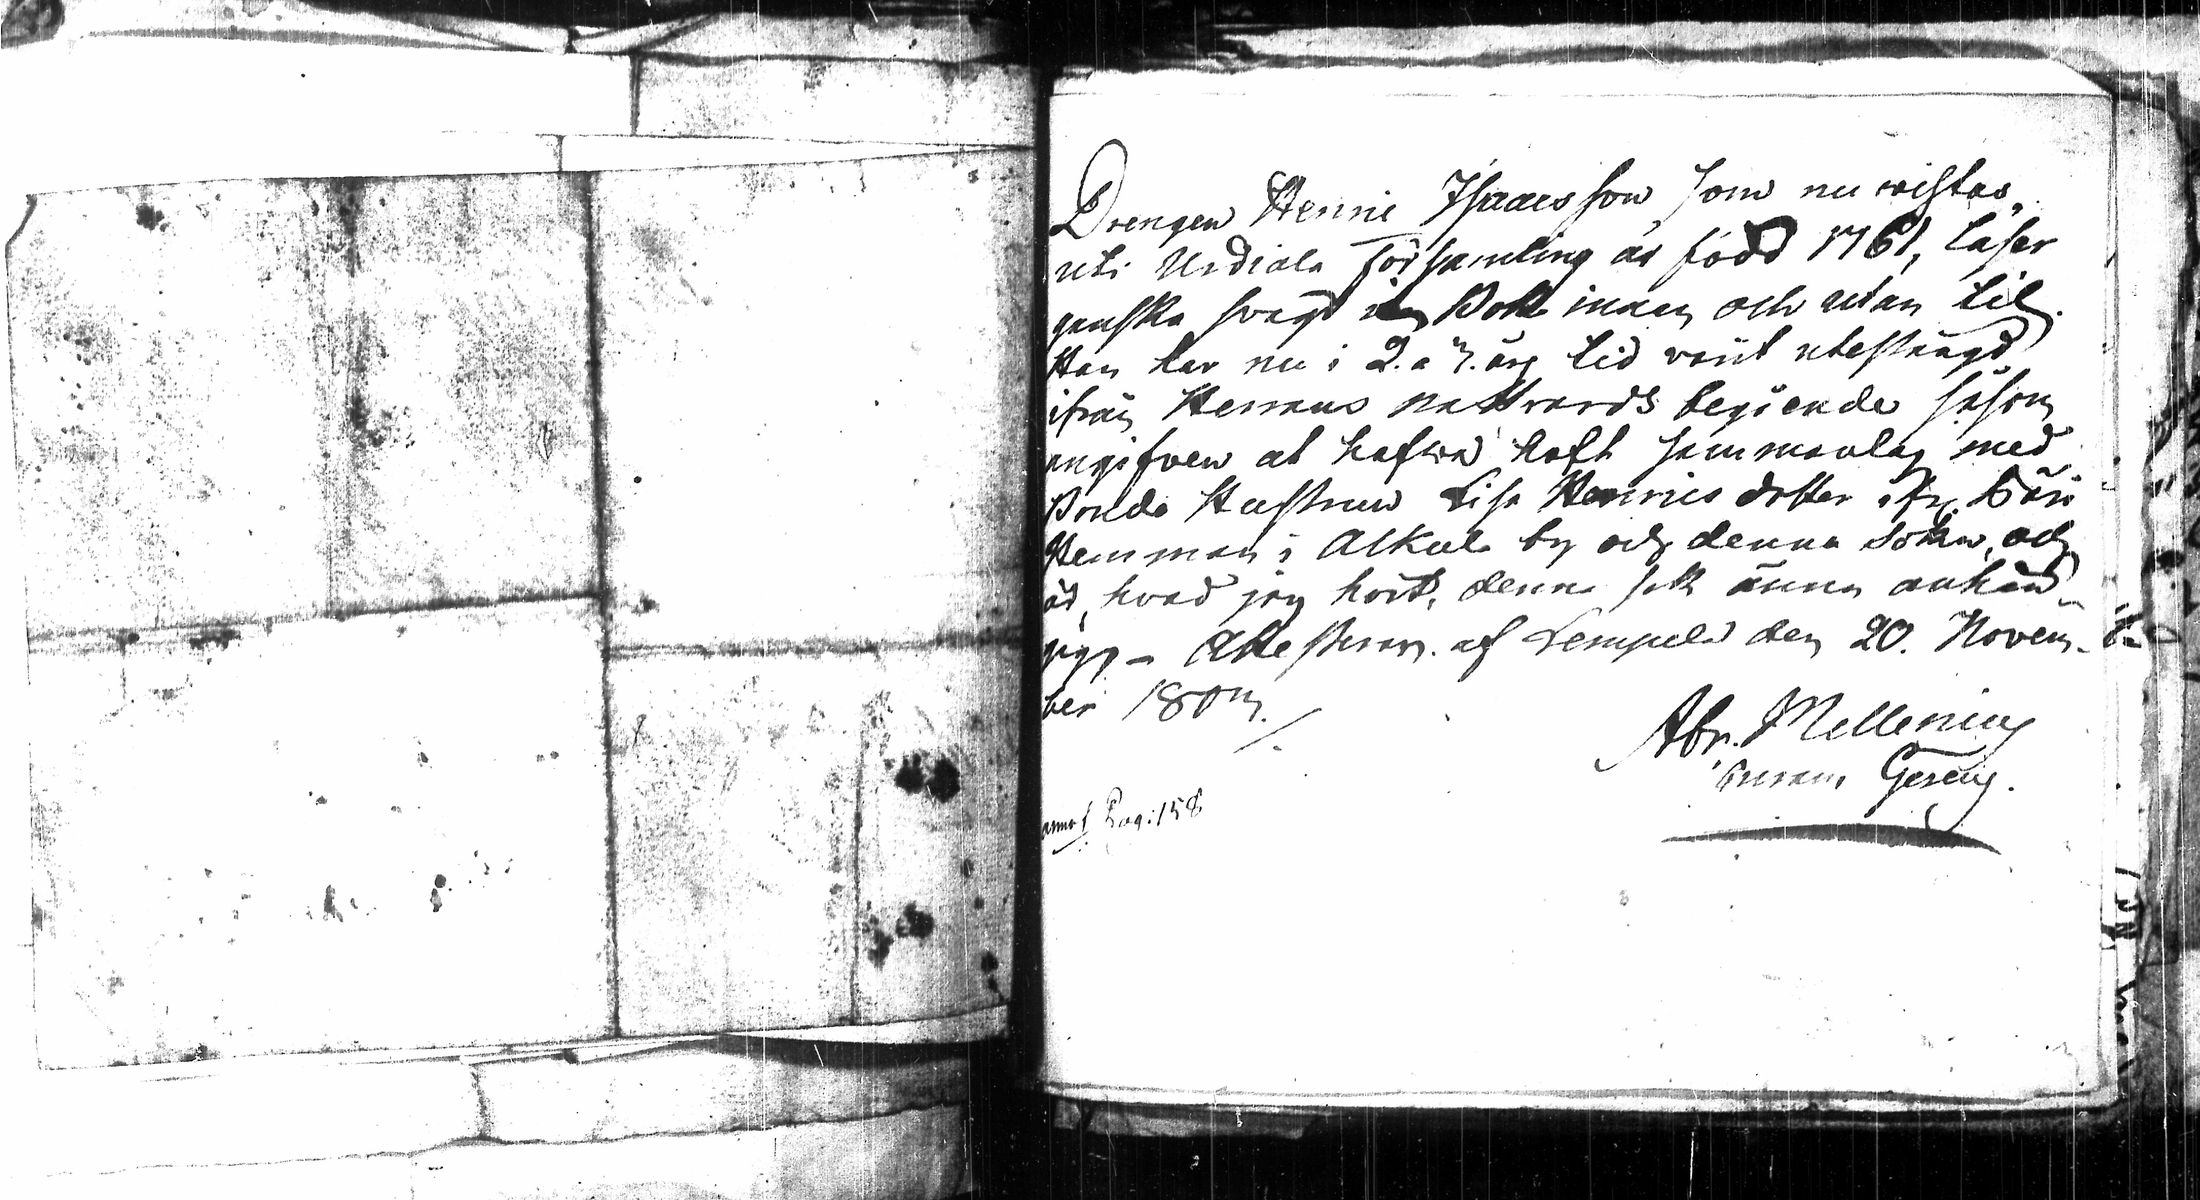 Drengen Henric Isaacsson som nu wistas
uti Urdiala Församling är född 1761, läser
ganska swagt i Bok innan och utan til.
Han har nu i 2. a 3. års tid varit utestängd
ifrån Herrans nattvards begående såsom
angifven at hafwa haft sammanlag med
Bonde Hustrun Lisa Henrics dotter ifrån
Hemman i Alkula by och denna Sokn, och
är, hvad jag hört, denna sak ännu anhän-
gig. Attesteras af Lempälä den 20. Novem-
ber 180
Abr. Mellenius
Pag: 158